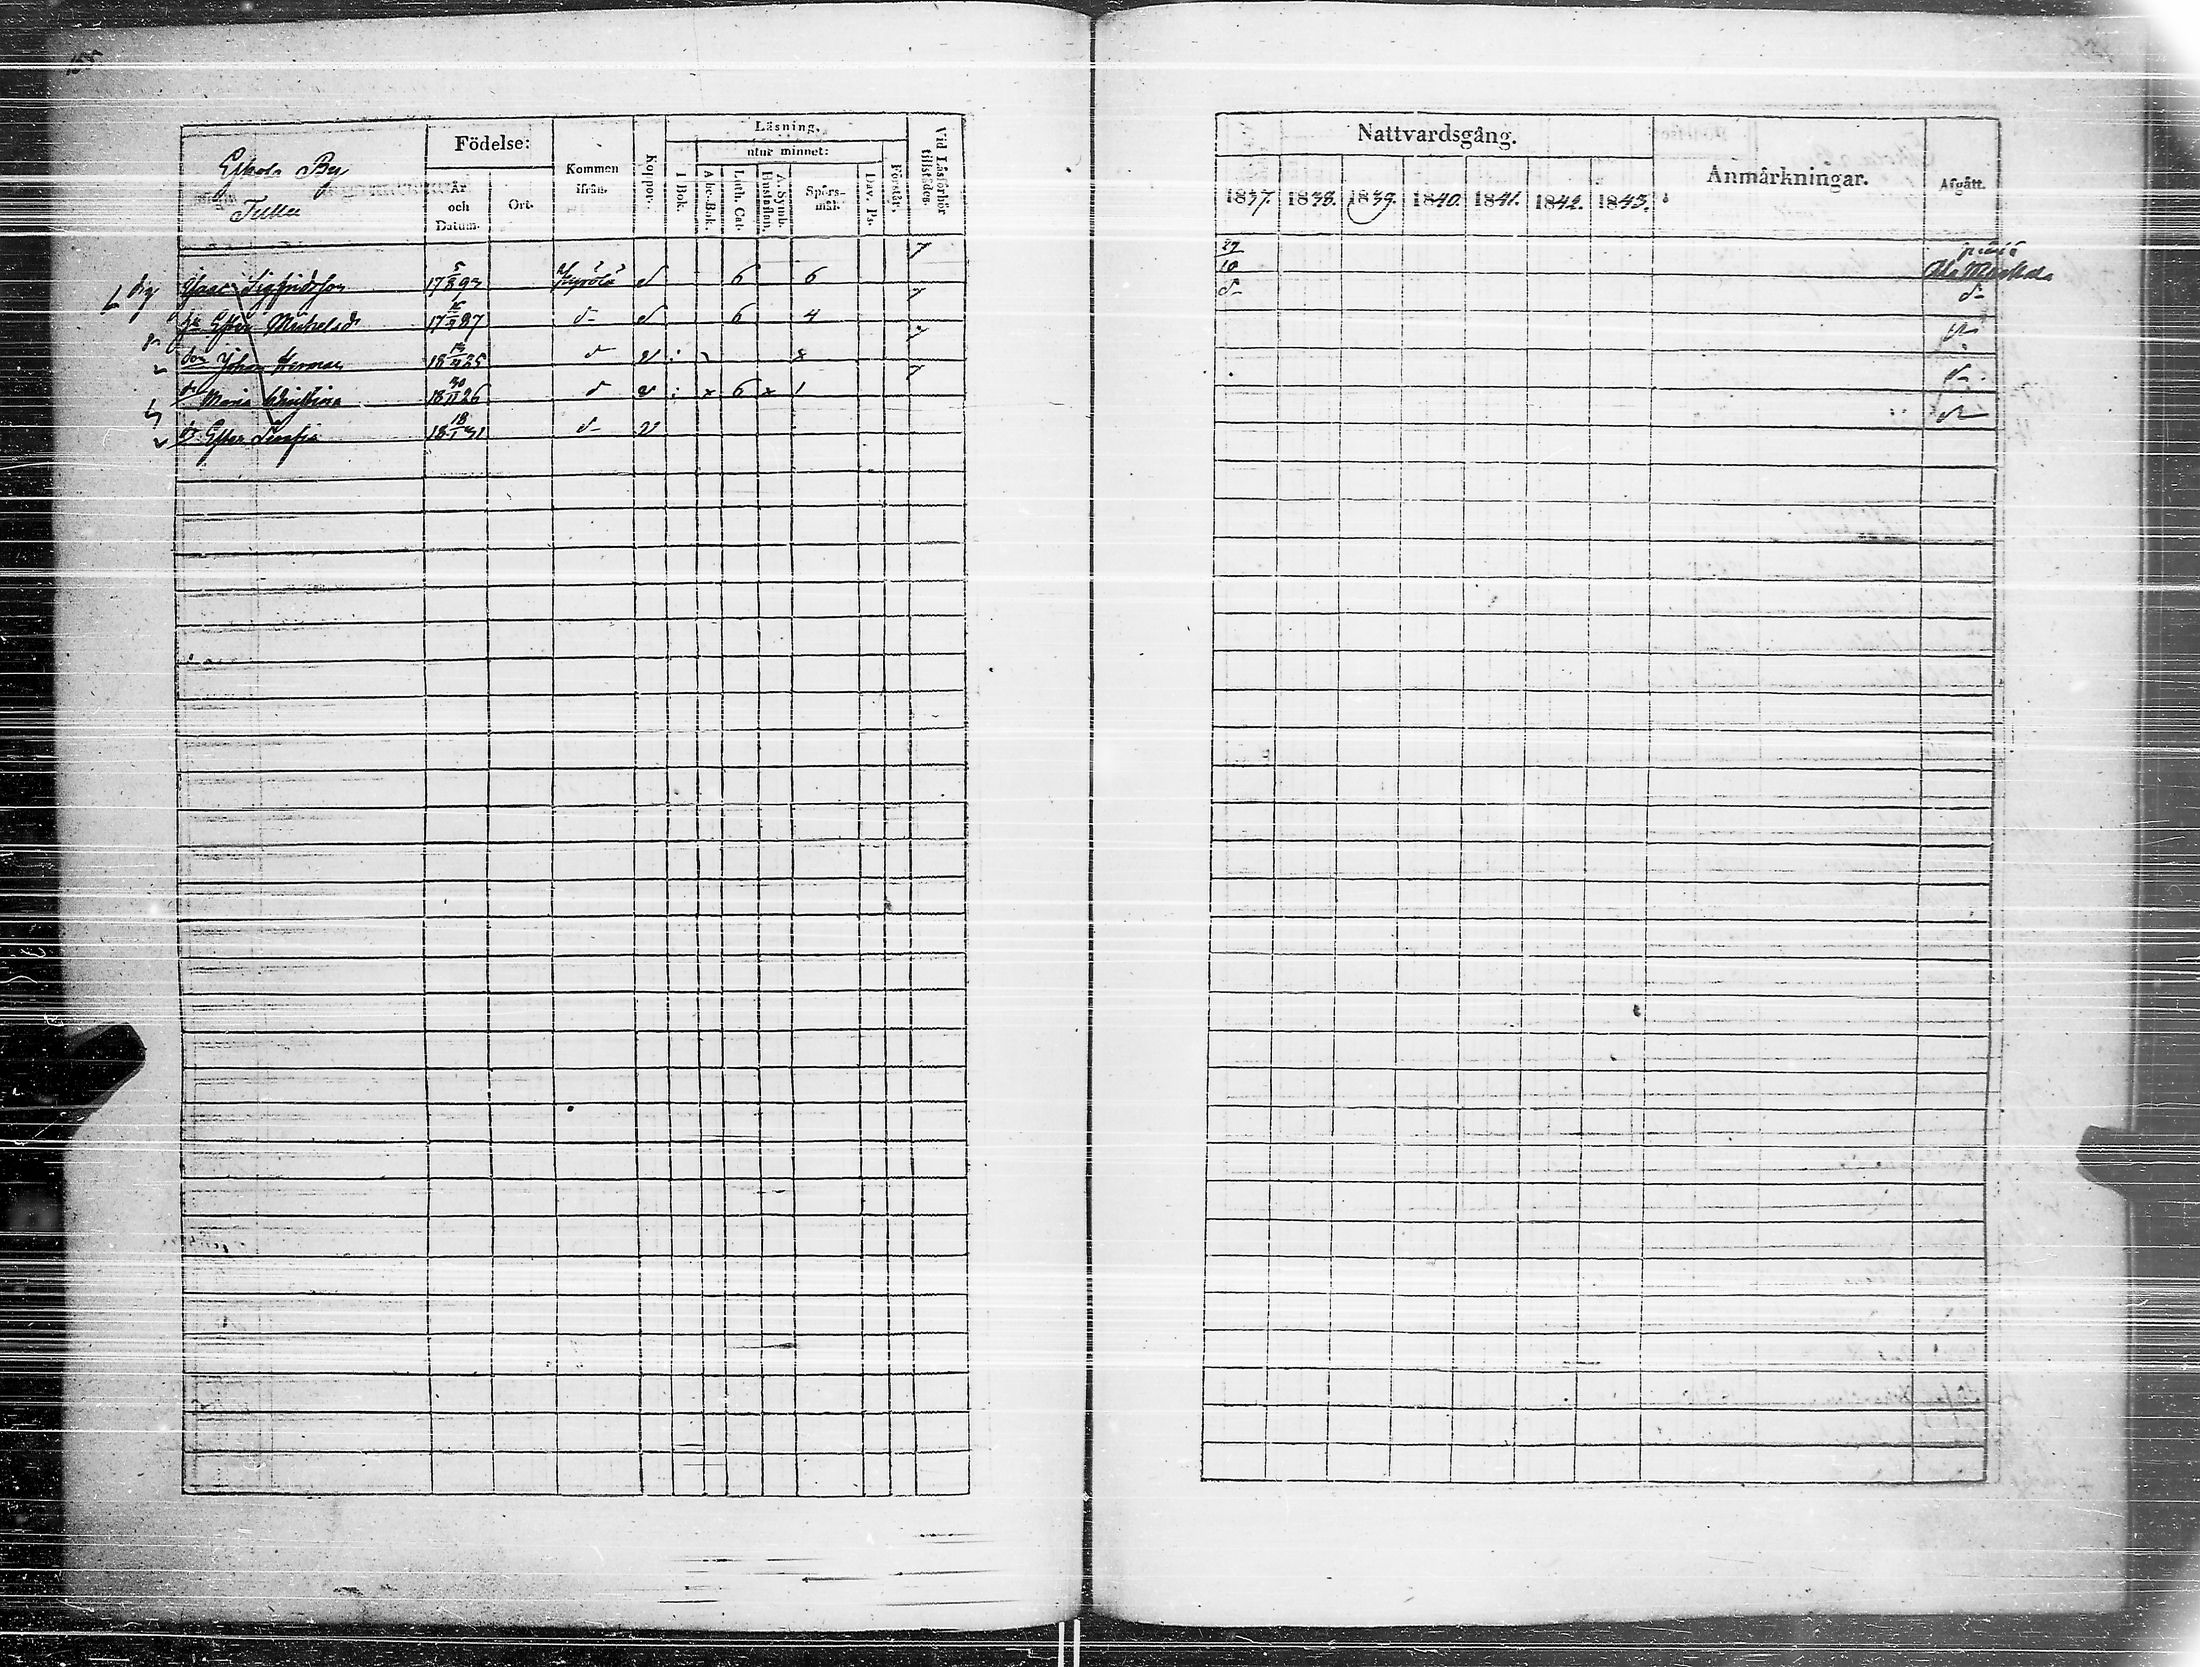 155
Eskola By
Tulla
Födelse:
År och Datum.
Ort.
Kommen ifrån.
Koppor.
Läsning.
I Bok.
utur minnet:
Abc-Bok.
Luth. Cat.
A. Symb. Hustaflan.
Spörs-mål.
Dav. Ps.
Förstår.
Vid Läsförhör tillstädes.
Isaac Sigfridsson 17 5/8 93 Kyrölä 6 6
hu Ester Michelsdr 17 87 d- 6 4
son Johan Herman 18 25 d v
dr Maria Christina 18 30/11 26 d v x 6 x 1
dr Ester Serafia 18 18/1 31 d- v
Nattvardsgång.
1837. 1838. 1839. 1840. 1841. 1842. 1843.
Anmärkningar.
Afgått.
27/10
d-
d-